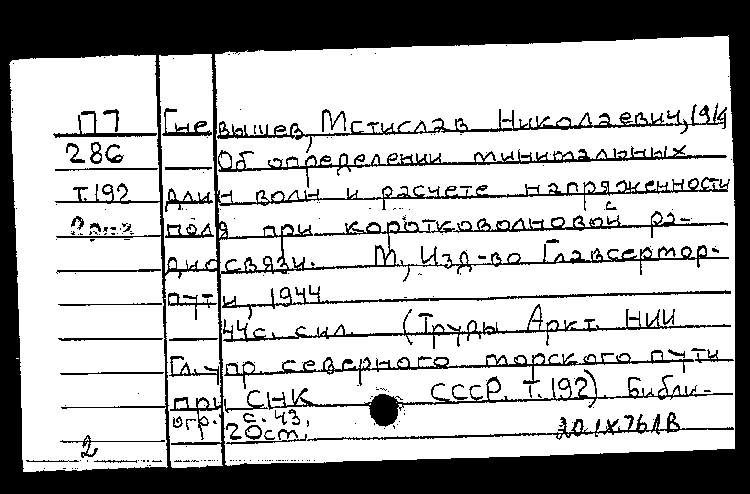 П7 Гневышев, Мстислав Николаевич, 1914
286 Об определении минимальных
т.192 длин волн и расчете напряженности
поля при коротковолновой ра-
диосвязи. М., Изд-во Главсевмор-
пути, 1944
44с. с ил. (Труды Аркт. НИИ
Гл. упр. северного морского пути
при СНК СССР. Т.192) Библи-
огр. с. 43,
20 ст.
2 20.IX.76 ЛВ